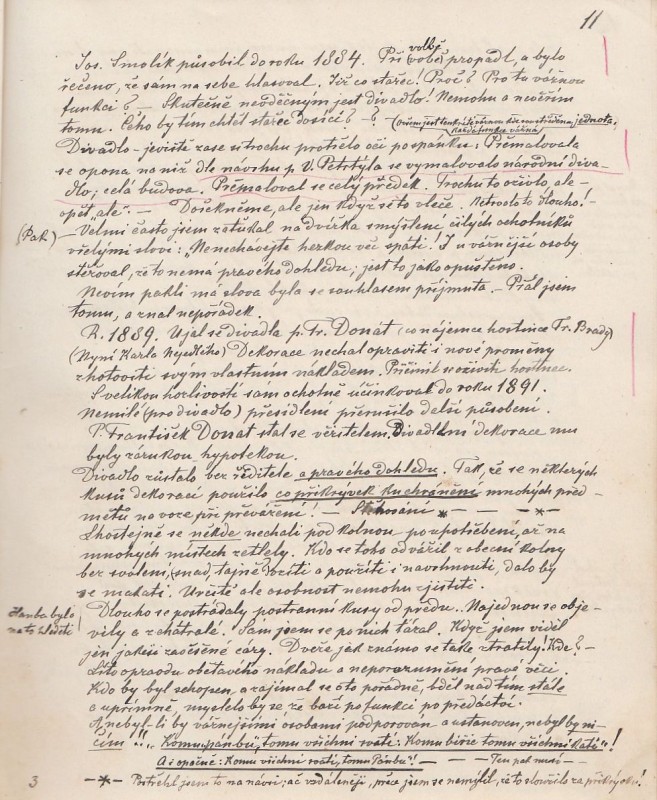 11
Jos. Smolík působil do roku 1884. Při (volbě) vobě propadl, a bylo
řečeno, že sám na sebe hlasoval. Již co stařec! Proč? Pro tu vážnou
funkci? – Skutečně nevděčným jest divadlo! Nemohu a nevěřím
tomu. Čeho by tím chtěl stařec docíliti? – ?
každá funkce vážná
Divadlo – jeviště zase u trochu protřelo oči po spánku: Přemalovala
se opona na niž dle návrhu p. V. Petrtýla se vymalovalo národní diva-
dlo; celá budova. Přemaloval se celý předek. Trochu to oživlo, ale –
opět „ale“. – Dořekněme, ale jen když si to vleče. Netrvalo to dlouho! –
(Pak) – Velmi často jsem zaťukal na dvířka smýšlení čilých ochotníků
vřelými slovy: „Nenechávejte hezkou věc zpáti. I u vážnější osoby
stěžoval, že to nemá pravého dohledu, jest to jako opuštěno.
Nevím pakli má slova byla se souhlasem přijmuta. – Přál jsem
tomu, a znal nepořádek.
R. 1889. Ujal se divadla p. Fr. Donát (co nájemce hostince Fr. Brady)
(Nyní Karla Nejedlého) Dekorace nechal opraviti i nové proměny
zhotoviti svým vlastním nákladem. Přičinil se oživiti hostinec.
S velikou horlivostí sám ochotně účinkoval do roku 1891.
Nemilé (pro divadlo) přesídlení přerušilo delší působení.
P. František Donát stal se věřitelem. Divadelní dekorace mu
byly zárukou, hypotekou.
Divadlo zůstalo bez ředitele a pravého dohledu. Tak, že se některých
kusů dekorací použilo co přikrývek ku chránění mnohých před-
mětů na voze při převážení! – –*–
Lhostejně se někde nechali pod kolnou po upotřebení, až na
mnohých místech zetlely. Kdo se toho odvážil z obecní kolny
bez svolení, (snad, tajně) vzíti a použíti i navrhnouti, dalo by
se makati. Určitě ale osobnost nemohu zjistiti.
Hanba bylo
na to hleděti
Dlouho se postrádaly postranní kusy od předu. Najednou se obje-
vily a zchátralé. Sám jsem se po nich tázal. Když jsem viděl
jen jakési zaoščené cáry. Dveře jak známo se také ztratily! Kde? –
Líto opravdu obětavého nákladu a neporozumění pravé věci.
Kdo by byl schopen, a zajímal se o to pořádně, bděl nad tím stále
a upřímně, myslelo by se že baží po funkci po předáctví.
A nebyl-li by vážnějšími osobami podporován a ustanoven, nebyl by ni-
čím!“ „Komu „pánbů“, tomu všichni svatí: Komu biřic tomu všichni kati“!
A i opačně: Komu všichni svatí, tomu Pánbů!“ – – –
–*– Postřehl jsem to na návsi; ač vzdáleněji, přece jsem se nemýlil, že to sloužilo za přikrývku!
3